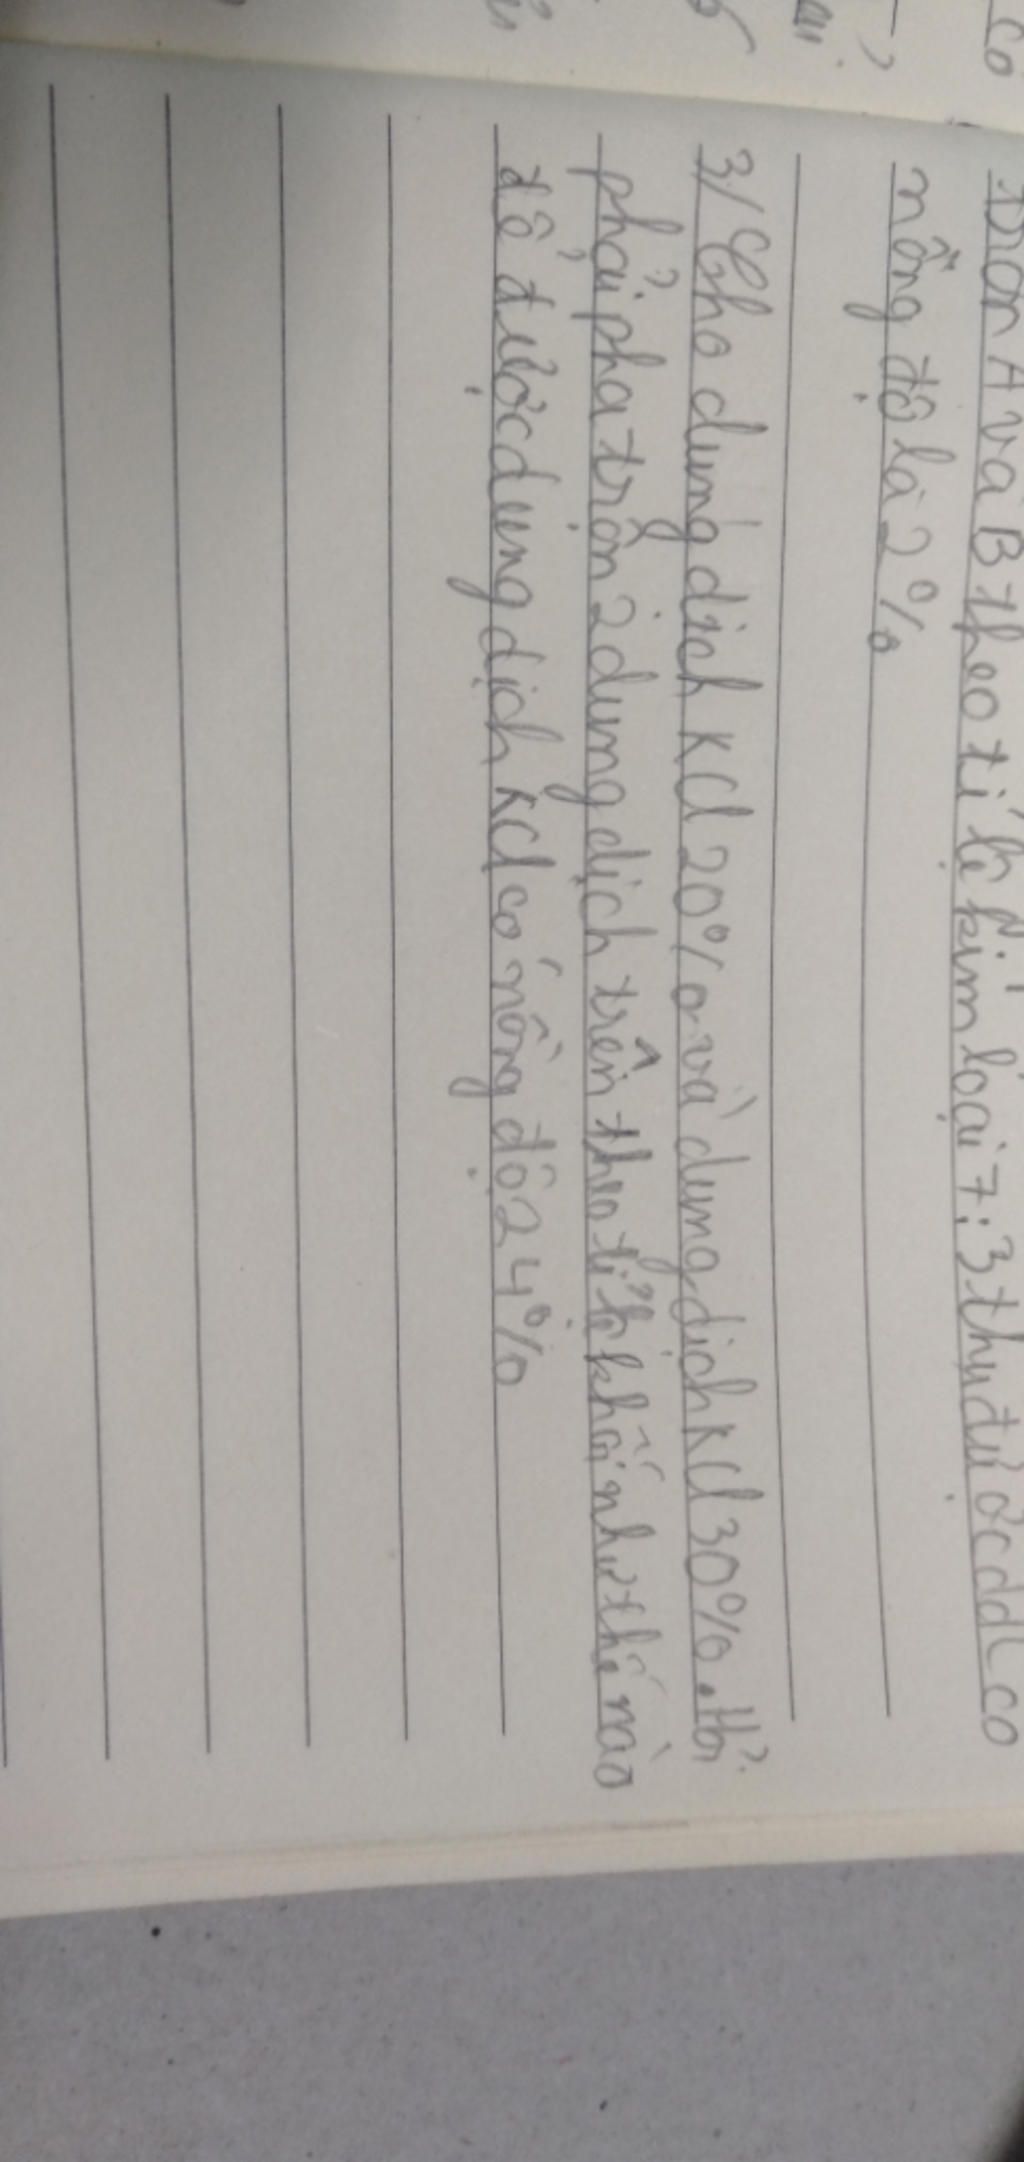 trộn A và B theo tỉ lệ kim loại 7:3 thu được ddC có
nồng độ là 2%
3/ Cho dung dịch KCl 20% và dung dịch KCl 30%. Hỏi
phải pha trộn 2 dung dịch trên theo tỉ lệ khối như thế nào
để được dung dịch KCl có nồng độ 24%